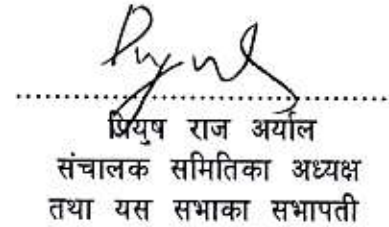 प्रियुष राज अर्याल
संचालक समितिका अध्यक्ष
तथा यस सभाका सभापती